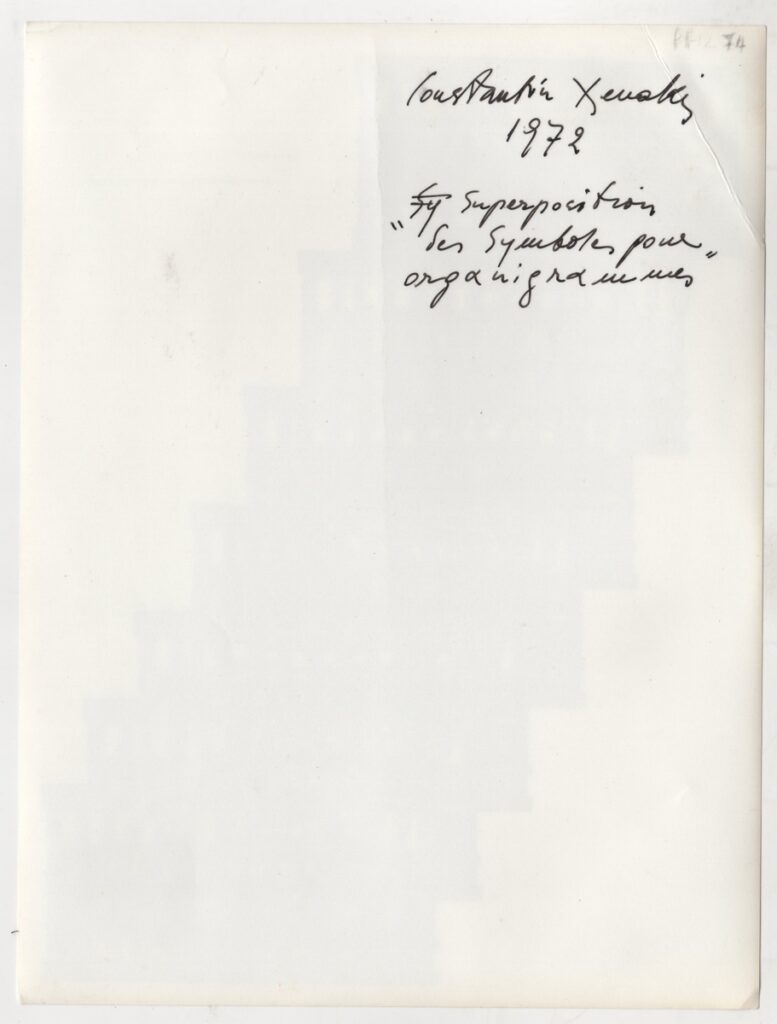 Constantin Xenakis
1972
Superposition
"des Symboles pour
organigrammes"